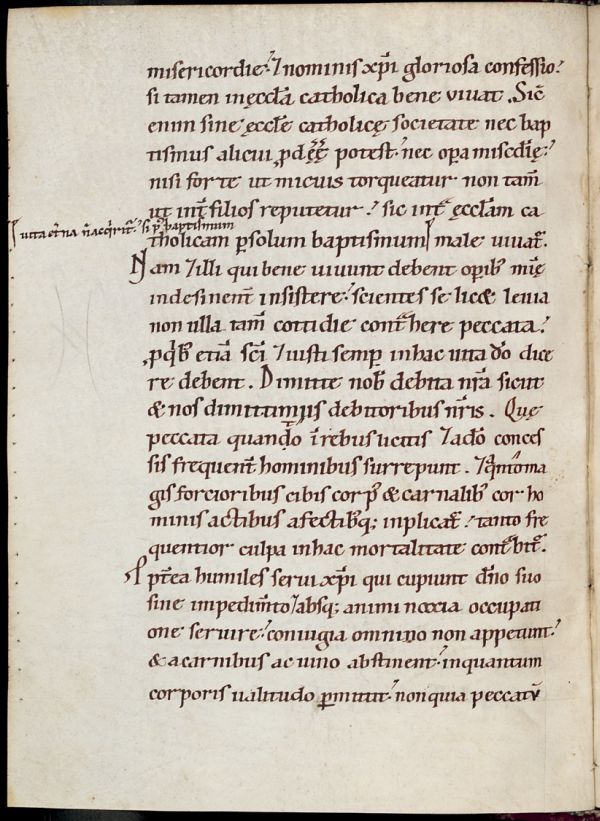 misericordie. ⁊ nominis xp̄i gloriosa confessio.
si tamen in ęccl̄a catholica bene uiuat. Sic̄
enim sine ęccl̄e catholicę societate nec bap
tismus alicui potest. nec op̄a mis̄cdię.
nisi forte ut micius torqueatur non tam̄
ut int̄ filios reputetur. sic int̄ ęccl̄am ca
uita et̄na n̄ acq̄rit̄. si p̄ baptismum
tholicam p̄ solum baptismum male uiuat̄.
Nam ⁊ illi qui bene uiuunt debent op̄ib; mīę
indesinent̄ insistere. scientes se licet leuia
non ulla tam̄ cottidie cont̄here peccata.
p̄ q̄b; etiā sc̄i ⁊ iusti semp̄ in hac uita dō dice
re debent. Dimitte nob̄ debita nr̄a sicut
& nos dimittimus debitoribus nr̄is. Quę
peccata quando in rebus licitis ⁊ a dō conces
sis frequent̄ hominibus surrepunt. ⁊ q̄nto ma
gis forcioribus cibis corp̄ & carnalib; cor ho
minis actibus afectibq; inplicat̄. tanto fre
quentior culpa in hac mortalitate cont̄hit̄.
⁊ pt̄ea humiles serui xp̄i qui cupiunt dn̄o suo
sine impedim̄to ⁊ absq; animi noxia occupati
one seruire. coniugia omnino non appetunt.
& a carnibus ac uino abstinent. inquantum
corporis ualitudo p̄mittit. non quia peccatū